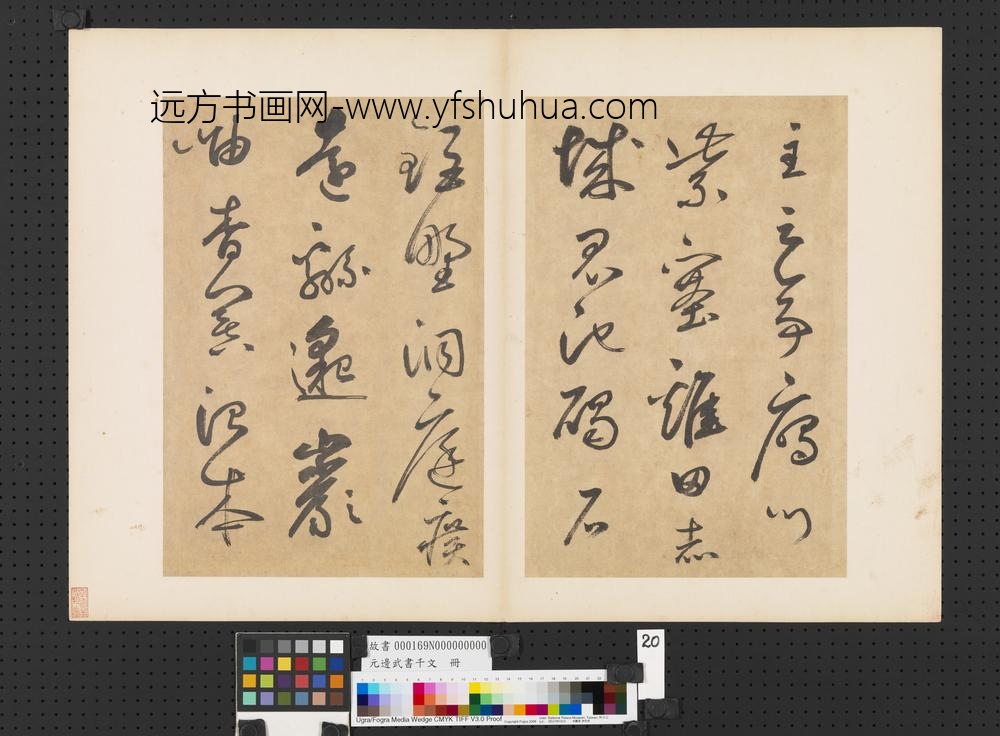 远方书画网-www.yfshuhua.com
主云亭雁門
紫塞雞田赤
城昆池碣石
鉅野洞庭曠
遠緜邈巖
岫杳冥治本
20
故書 000169N000000000
元邊武書千文 冊
Ugra/Fogra Media Wedge CMYK TIFF V3.0 Proof